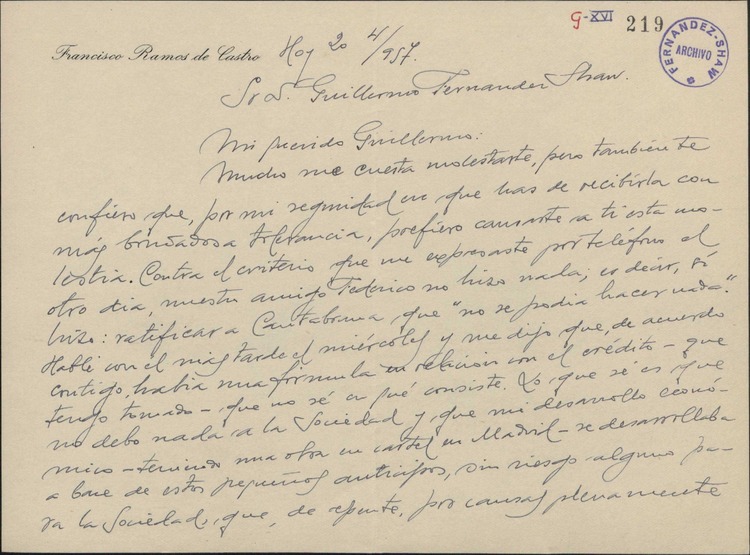 G-XVI 219
FERNANDEZ-SHAW ARCHIVO
Francisco Ramos de Castro Hoy 20 4/957.
Sr D. Guillermo Fernandez Shaw.
Mi querido Guillermo:
Mucho me cuesta molestarte, pero también te
confieso que, por mi seguridad en que has de recibirla con
más bondadosa tolerancia, prefiero causarte a ti esta mo-
lestia. Contra el criterio que me expresaste por teléfono el
otro día, nuestro amigo Federico no hizo nada; es decir, sí
hizo: ratificar a Cantabrana que "no se podía hacer nada."
Hablé con él más tarde el miércoles y me dijo que, de acuerdo
contigo, había una fórmula en relación con el crédito - que
tengo tomado - que no sé en qué consiste. Lo que sé es que
no debo nada a la Sociedad y que mi desarrollo econó-
mico - teniendo una obra en cartel en Madrid - se desarrollaba
a base de estos pequeños anticipos, sin riesgo alguno pa-
ra la Sociedad, que, de repente, por causas plenamente